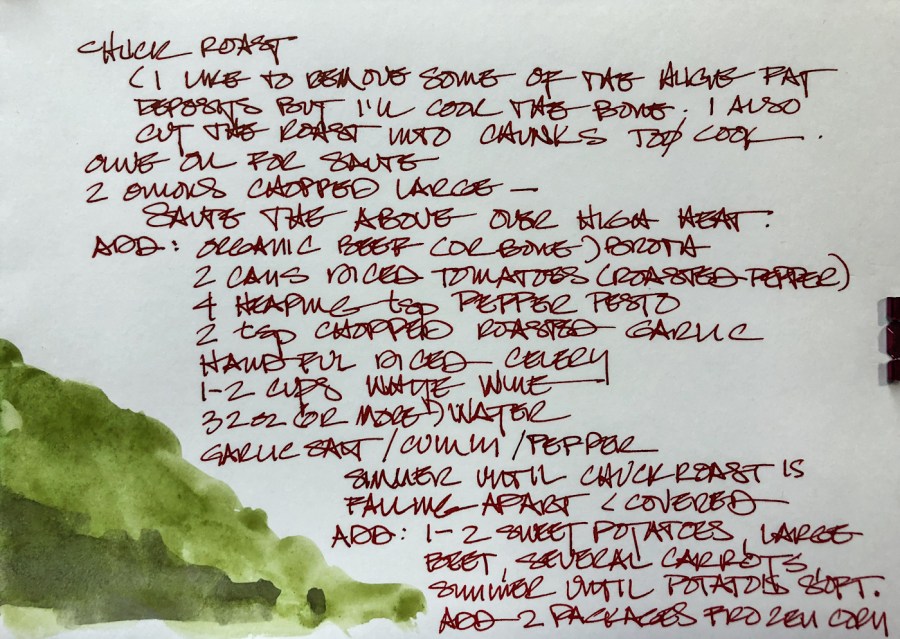 CHUCK ROAST
(I LIKE TO REMOVE SOME OF THE HUGE FAT
DEPOSITS BUT I'LL COOK THE BONE. I ALSO
CUT THE ROAST INTO CHUNKS TO COOK.
OLIVE OIL FOR SAUTE
2 ONIONS CHOPPED LARGE –
SAUTE THE ABOVE OVER HIGH HEAT.
ADD: ORGANIC BEEF (OR BONE) BROTH
2 CANS DICED TOMATOES (ROASTED PEPPER)
4 HEAPING tsp PEPPER PESTO
2 tsp CHOPPED ROASTED GARLIC
HANDFUL DICED CELERY
1-2 CUPS WHITE WINE
32 oz (OR MORE) WATER
GARLIC SALT / CUMIN / PEPPER
SIMMER UNTIL CHUCK ROAST IS
FALLING APART (COVERED
ADD: 1-2 SWEET POTATOES, LARGE
BEET, SEVERAL CARROTS,
SIMMER UNTIL POTATOES SOFT.
ADD 2 PACKAGES FROZEN CORN